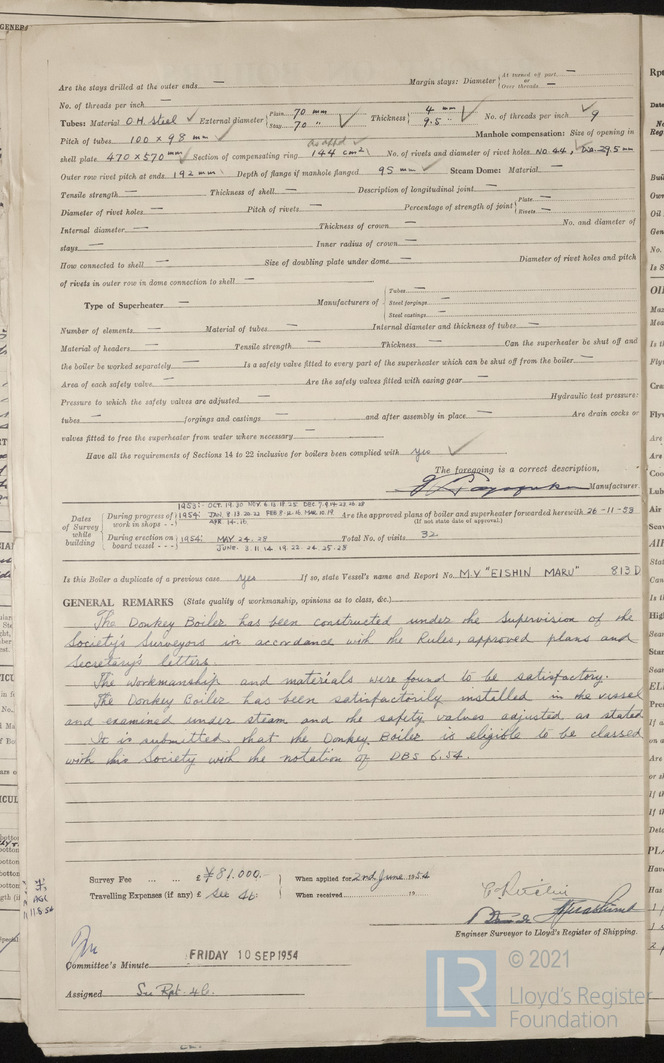 Are the stays drilled at the outer ends — Margin stays: Diameter { At turned off part — or Over threads —
No. of threads per inch —
Tubes: Material O.H Steel ✓ External diameter { Plain 70 mm Stay 70 " ✓ Thickness { 4 mm 9.5 " ✓ No. of threads per inch ✓ 9
Pitch of tubes 100 x 98 mm ✓ Manhole compensation: Size of opening in
as appd ✓
shell plate 470 x 570 mm Section of compensating ring 144 cm² No. of rivets and diameter of rivet holes NO. 44, Dia. 29.5 mm
Outer row rivet pitch at ends 192 mm Depth of flange if manhole flanged 95 mm ✓ Steam Dome: Material —
Tensile strength — Thickness of shell — Description of longitudinal joint —
Diameter of rivet holes — Pitch of rivets — Percentage of strength of joint { Plate — Rivets —
Internal diameter — Thickness of crown — No. and diameter of
stays — Inner radius of crown —
How connected to shell — Size of doubling plate under dome — Diameter of rivet holes and pitch
of rivets in outer row in dome connection to shell —
Type of Superheater — Manufacturers of { Tubes — Steel forgings — Steel castings —
Number of elements — Material of tubes — Internal diameter and thickness of tubes —
Material of headers — Tensile strength — Thickness — Can the superheater be shut off and
the boiler be worked separately — Is a safety valve fitted to every part of the superheater which can be shut off from the boiler —
Area of each safety valve — Are the safety valves fitted with easing gear —
Pressure to which the safety valves are adjusted — Hydraulic test pressure:
tubes — forgings and castings — and after assembly in place — Are drain cocks or
valves fitted to free the superheater from water where necessary —
Have all the requirements of Sections 14 to 22 inclusive for boilers been complied with yes ✓
The foregoing is a correct description,
Manufacturer.
Dates of Survey while building
During progress of work in shops - -
1953: OCT. 19. 30 NOV. 6. 12. 18. 25 DEC. 7. 9. 14. 23. 26. 28
1954: JAN. 8. 13. 20. 22 FEB. 8. 12. 16 MAR. 10. 19
APR 14. 16.
Are the approved plans of boiler and superheater forwarded herewith 26-11-53
(If not state date of approval.)
During erection on board vessel - - -
1954: MAY 24. 28
JUNE. 3. 11. 14. 19. 22. 24. 25. 28
Total No. of visits 32
Is this Boiler a duplicate of a previous case yes If so, state Vessel's name and Report No. M.V "EISHIN MARU" 813 D
GENERAL REMARKS (State quality of workmanship, opinions as to class, &c.)
The Donkey Boiler has been constructed under the Supervision of the
Society's Surveyors in accordance with the Rules, approved plans and
Secretary's letters.
The workmanship and materials were found to be satisfactory.
The Donkey Boiler has been satisfactorily installed in the vessel
and examined under steam and the safety valves adjusted as stated
It is submitted that the Donkey Boiler is eligible to be classed
with this Society with the notation of DBS 6.54.
Survey Fee ... ... £ ¥81,000.- When applied for 2nd June 1954
Travelling Expenses (if any) £ See 4b. When received 19
Engineer Surveyor to Lloyd's Register of Shipping.
Committee's Minute FRIDAY 10 SEP 1954
Assigned See Rpt. 4b.
LR © 2021
Lloyd's Register
Foundation